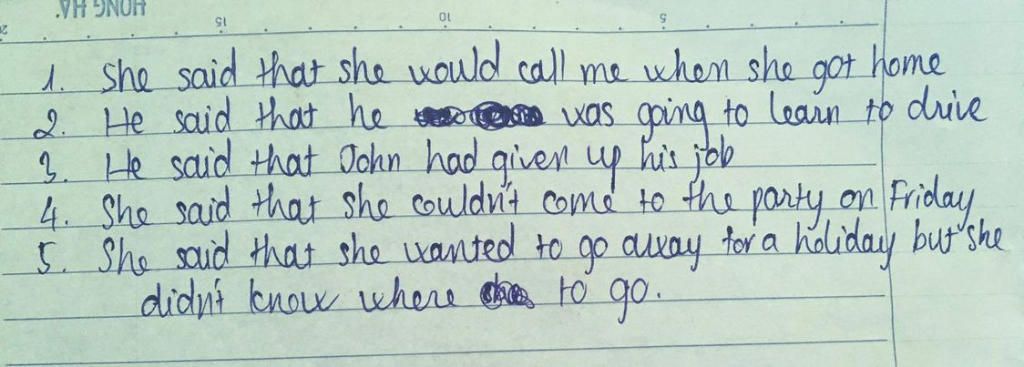 HONG HA.
20 15 10 5
1. She said that she would call me when she got home
2. He said that he was going to learn to drive
3. He said that John had given up his job
4. She said that she couldn't come to the party on Friday
5. She said that she wanted to go away for a holiday but she
didn't know where to go.